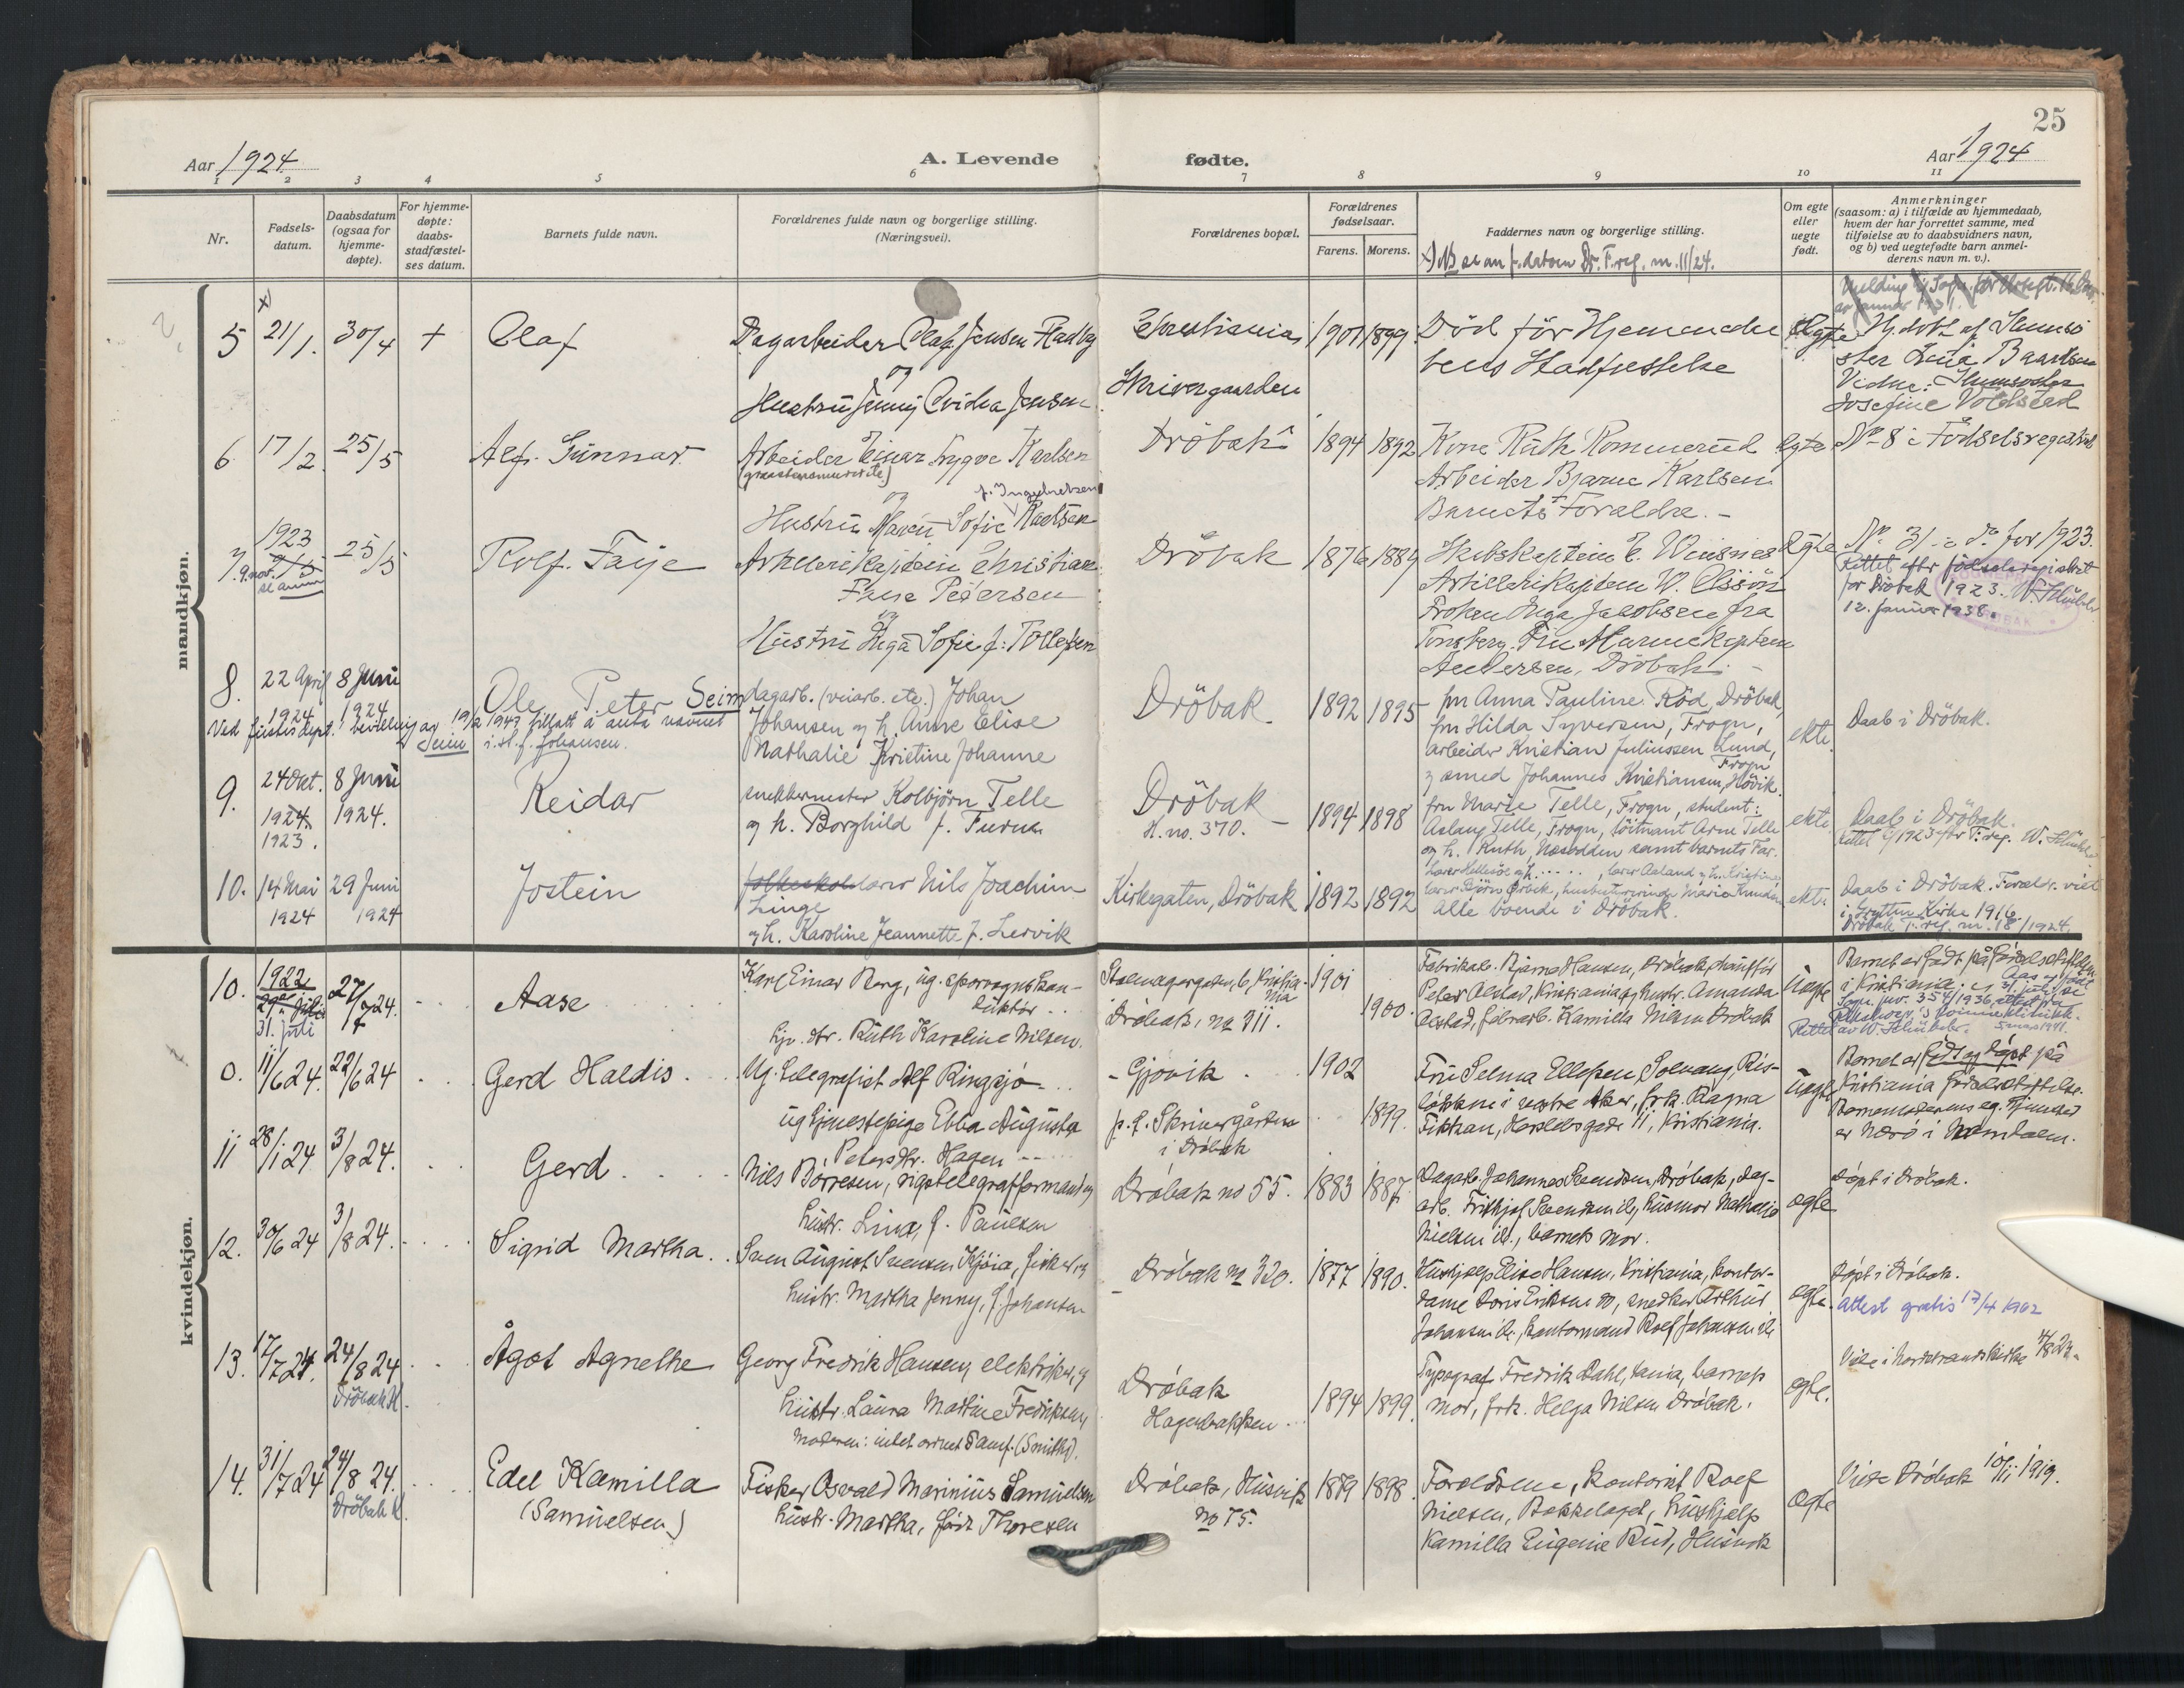 25
Aar 1924
A. Levende
fødte.
Aar 1924
1 2 3 4 5 6 7 8 9 10 11
Nr.
Fødsels-
datum.
Daabsdatum
(ogsaa for
hjemme-
døpte).
For hjemme-
døpte:
daabs-
stadfæstel-
ses datum.
Barnets fulde navn.
Forældrenes fulde navn og borgerlige stilling.
(Næringsvei).
Forældrenes bopæl.
Forældrenes
fødselsaar.
Farens. Morens.
Faddernes navn og borgerlige stilling.
Om egte
eller
uegte
født.
Anmerkninger
(saasom: a) i tilfælde av hjemmedaab,
hvem der har forrettet samme, med
tilføielse av to daabsvidners navn,
og b) ved uegtefødte barn anmel-
derens navn m. v.).
mandkjøn.
5 21/1. 30/4 + Olaf
Dagarbeider Olaf Jensen
og
Hustru Jenny Ovidia Jensen
Christiania
Skrivergaarden
1901 1899
Død før Hjemmedaa
bens Stadfæstelse
Egte
Hj. døbt af
Josefine Voldsted
6 17/2 25/5 Alf Gunnar
Arbeider Einar Trygve Karlsen
og
f. Ingebretsen
Hustru Sofie Karlsen
Drøbak 1894 1892
Kone Ruth Rommerud
Arbeider Bjarne Karlsen
Barnets Forældre. -
Egte
No 8 i Fødselsregistret
7. 1923
9. nov. 25/5 Rolf Faye
Artillerikaptein Christian
Faye Petersen
og
Hustru Inga Sofie f. Tollefsen
Drøbak 1876 1889
Artillerikaptein W. Olssøn
Frøken Inga Jacobsen fra
Tønsberg.
Andersen, Drøbak. -
Egte
No 31 i do for 1923.
Rettet efter fødselsregistret
for Drøbak 1923.
12. januar 1938.
8. 22 April 1924 8 Juni 1924 Ole Peter Seim
Ved justisdept.s bevilling av 19/2 1943 tillatt å anta navnet
Seim i. st. f. Johansen.
dagarb. (veiarb. etc.) Johan
Johansen og h. Anne Elise
Nathalie Kristine Johanne
Drøbak. 1892 1895
fru Anna Pauline Röd, Drøbak,
fru Hilda Syversen, Frogn,
arbeider Kristian Juliussen Lund,
Frogn
og smed Johannes Kristiansen, Hövik.
ekte.
Daab i Drøbak.
9. 24 Okt. 1924. 1923. 8 Juni 1924. Reidar
snekkermester Kolbjörn Telle
og h. Borghild f. Furu
Drøbak
H. no. 370. 1894 1898
fru Marie Telle, Frogn, student:
Aslaug Telle, Frogn, löitnant Arne Telle
og h. Ruth, Nesodden samt barnets Far.
ekte
Daab i Drøbak.
10. 14 Mai 1924 29 Juni 1924 Jostein
folkeskolelærer Nils Joachim
Linge
og h. Karoline Jeannette f. Lervik
Kirkegaten, Drøbak 1892 1892
Alle boende i Drøbak.
ekte
Daab i Drøbak. Foreldr. viet
i Grytten Kirke 1916
Drøbak f. reg. nr. 18/1924.
kvindekjøn.
10. 1922 29de juli 31. juli 27/7 24. Aase
Karl Einar Berg, ug. sporvognskon-
duktør
Hjv. dtr. Ruth Karoline Nilsen.
Drøbak, no 311. 1901 1900.
Fabrikarb. Bjarne Hansen, Drøbak,
Peder Alstad, Kristiania og hustr. Amanda
Alstad, fabrarb. Kamilla Nilsen Drøbak
Uegte
Barnet er født på Fødselsstiftelsen
i Kristiania.
0. 11/6 24. 22/6 24 Gerd Haldis.
Ug. telegrafist Alf Ringsjø
ug tjenestepige Ebba Augusta
Petersdtr. Hagen
Gjøvik
p. t. Skrivergården
i Drøbak
1902 1899.
Fru Selma Ellefsen, Solvang, Ris-
løkken i vestre Aker, frk. Ragna
Uegte
Barnet er født og døpt på
Kristiania fødselsstiftelse.
er Nærø i Namdalen.
11 28/1 24 3/8 24. Gerd
Nils Børresen, rigstelegrafformand og
hustr. Lina, f. Paulsen
Drøbak no 55. 1883 1887.
Dagarb. Johannes Svendsen, Drøbak, dag-
arb. Frithjof Svendsen ib, husmor Nathalie
Nielsen ib., barnets mor.
egte
døpt i Drøbak.
12. 30/6 24 3/8 24. Sigrid Martha.
Sven August Svensen Kjøia, fisker, og
hustr. Martha Jenny, f. Johansen
Drøbak no 320. 1877 1890.
Hushjælp Elise Hansen, Kristiania, kontor-
dame Doris Eriksen do, snedker Arthur
Johansen ib., kontormand Rolf Johansen ib
egte.
døpt i Drøbak.
Attest gratis 17/4 1942
13. 17/7 24. 24/8 24 Drøbak K. Ågot Agnethe
Georg Fredrik Hansen, elektriker, og
hustr. Laura Martine Fredriksen,
Drøbak
Hagebakken 1894 1899.
Typograf Fredrik Dahl, barnets
mor, frk. Helga Nilsen Drøbak.
egte.
14. 31/7 24 24/8 24. Drøbak K. Edel Kamilla
(Samuelsen)
Fisker Osvald Marinius Samuelsen
hustr. Martha, født Thoresen
Drøbak, Husvik
no 75. 1879 1898.
Forældrene, kontorist Rolf
Nielsen, Bækkelaget, hushjælp
Kamilla Eugenie Rud, Husvik
egte
Viet Drøbak 10/11 1919.